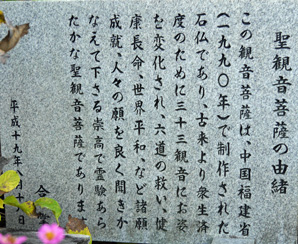 聖観音菩薩の由緒
この観音菩薩は、中国福建省
(一九九〇年)で制作された
石仏であり、古来より衆生済
度のために三十三観音にお姿
を変化され、六道の救い、健
康長命、世界平和、など諸願
成就、人々の願を良く聞きか
なえて下さる崇高で霊験あら
たかな聖観音菩薩であります
平成十九年八月十
合掌